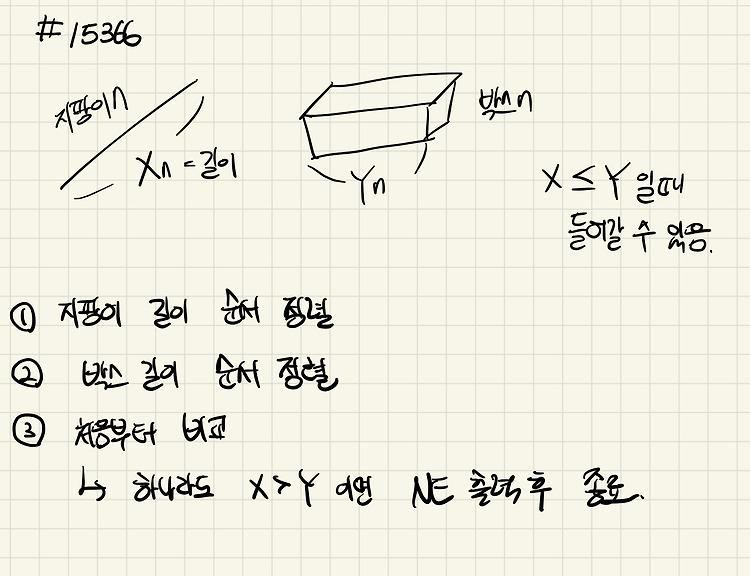 #15366
지팡이n
Xn = 길이
박스n
Yn
X ≤ Y 일때
들어갈 수 있음.
① 지팡이 길이 순서 정렬
② 박스 길이 순서 정렬
③ 처음부터 비교
↳ 하나라도 X > Y 이면 NE 출력 후 종료.